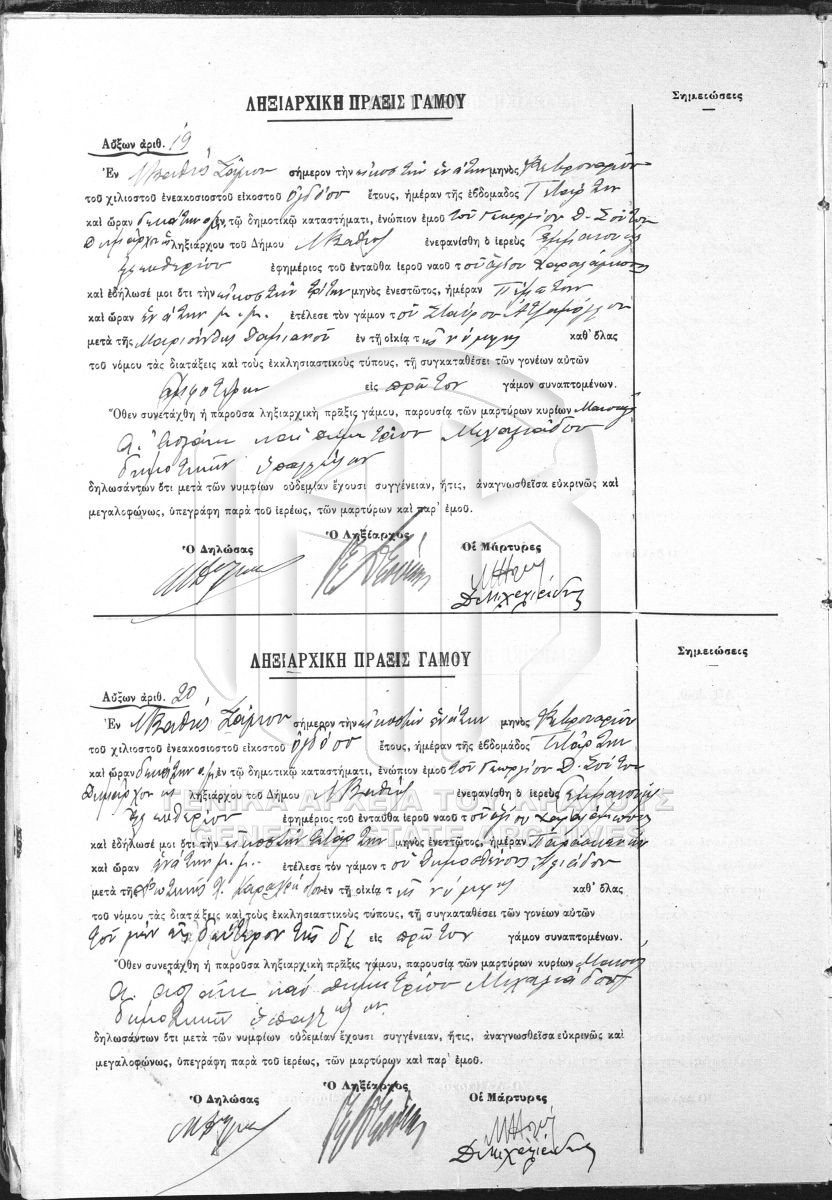 ΛΗΞΙΑΡΧΙΚΗ ΠΡΑΞΙΣ ΓΑΜΟΥ
Σημειώσεις
Αὔξων ἀριθ. 19
Ἐν Βαθέος Σάμου σήμερον τὴν εἰκοστὴν ἐνάτην μηνὸς Φεβρουαρίου
τοῦ χιλιοστοῦ ἐνεακοσιοστοῦ εἰκοστοῦ ὀγδόου ἔτους, ἡμέραν τῆς ἑβδομάδος Τετάρτην
καὶ ὥραν δεκάτην π.μ. ἐν τῷ δημοτικῷ καταστήματι, ἐνώπιον ἐμοῦ τοῦ Γεωργίου Δ. Σούτου
Δημάρχου ὡς ληξιάρχου τοῦ Δήμου Βαθέος ἐνεφανίσθη ὁ ἱερεὺς Ἐμμανουὴλ
Ἐλευθερίου ἐφημέριος τοῦ ἐνταῦθα ἱεροῦ ναοῦ τοῦ ἁγίου Χαραλάμπους
καὶ ἐδήλωσέ μοι ὅτι τὴν εἰκοστὴν τρίτην μηνὸς ἐνεστῶτος, ἡμέραν Πέμπτην
καὶ ὥραν ἐνάτην μ.μ. ἐτέλεσε τὸν γάμον τοῦ Σταύρου
μετὰ τῆς Μαριάνθης Δαμιανοῦ ἐν τῇ οἰκίᾳ τῆς νύμφης καθ' ὅλας
τοῦ νόμου τὰς διατάξεις καὶ τοὺς ἐκκλησιαστικοὺς τύπους, τῇ συγκαταθέσει τῶν γονέων αὐτῶν
ἀμφοτέρων εἰς πρῶτον γάμον συναπτομένων.
Ὅθεν συνετάχθη ἡ παροῦσα ληξιαρχικὴ πρᾶξις γάμου, παρουσίᾳ τῶν μαρτύρων κυρίων Μανουὴλ
Α. καὶ Δημητρίου Μιχαλιάδου
δημοτικῶν ὑπαλλήλων
δηλωσάντων ὅτι μετὰ τῶν νυμφίων οὐδεμίαν ἔχουσι συγγένειαν, ἥτις, ἀναγνωσθεῖσα εὐκρινῶς καὶ
μεγαλοφώνως, ὑπεγράφη παρὰ τοῦ ἱερέως, τῶν μαρτύρων καὶ παρ' ἐμοῦ.
Ὁ Δηλώσας Ὁ Ληξίαρχος Οἱ Μάρτυρες
Δ Μιχαλιάδης
ΛΗΞΙΑΡΧΙΚΗ ΠΡΑΞΙΣ ΓΑΜΟΥ
Σημειώσεις
Αὔξων ἀριθ. 20
Ἐν Βαθέος Σάμου σήμερον τὴν εἰκοστὴν ἐνάτην μηνὸς Φεβρουαρίου
τοῦ χιλιοστοῦ ἐνεακοσιοστοῦ εἰκοστοῦ ὀγδόου ἔτους, ἡμέραν τῆς ἑβδομάδος Τετάρτην
καὶ ὥραν δεκάτην π.μ. ἐν τῷ δημοτικῷ καταστήματι, ἐνώπιον ἐμοῦ τοῦ Γεωργίου Δ. Σούτου
Δημάρχου ὡς ληξιάρχου τοῦ Δήμου Βαθέος ἐνεφανίσθη ὁ ἱερεὺς Ἐμμανουὴλ
ΓΕΝΙΚΑ ΑΡΧΕΙΑ ΤΟΥ ΚΡΑΤΟΥΣ
Ἐλευθερίου ἐφημέριος τοῦ ἐνταῦθα ἱεροῦ ναοῦ τοῦ ἁγίου Χαραλάμπους
GENERAL STATE ARCHIVES
καὶ ἐδήλωσέ μοι ὅτι τὴν εἰκοστὴν τετάρτην μηνὸς ἐνεστῶτος, ἡμέραν Παρασκευὴν
καὶ ὥραν ἐνάτην μ.μ. ἐτέλεσε τὸν γάμον τοῦ Δημοσθένους
μετὰ τῆς ἐν τῇ οἰκίᾳ τῆς νύμφης καθ' ὅλας
τοῦ νόμου τὰς διατάξεις καὶ τοὺς ἐκκλησιαστικοὺς τύπους, τῇ συγκαταθέσει τῶν γονέων αὐτῶν
τοῦ μὲν εἰς δεύτερον τῆς δὲ εἰς πρῶτον γάμον συναπτομένων.
Ὅθεν συνετάχθη ἡ παροῦσα ληξιαρχικὴ πρᾶξις γάμου, παρουσίᾳ τῶν μαρτύρων κυρίων Μανουὴλ
Α. καὶ Δημητρίου Μιχαλιάδου
δημοτικῶν ὑπαλλήλων
δηλωσάντων ὅτι μετὰ τῶν νυμφίων οὐδεμίαν ἔχουσι συγγένειαν, ἥτις, ἀναγνωσθεῖσα εὐκρινῶς καὶ
μεγαλοφώνως, ὑπεγράφη παρὰ τοῦ ἱερέως, τῶν μαρτύρων καὶ παρ' ἐμοῦ.
Ὁ Δηλώσας Ὁ Ληξίαρχος Οἱ Μάρτυρες
Δ Μιχαλιάδης